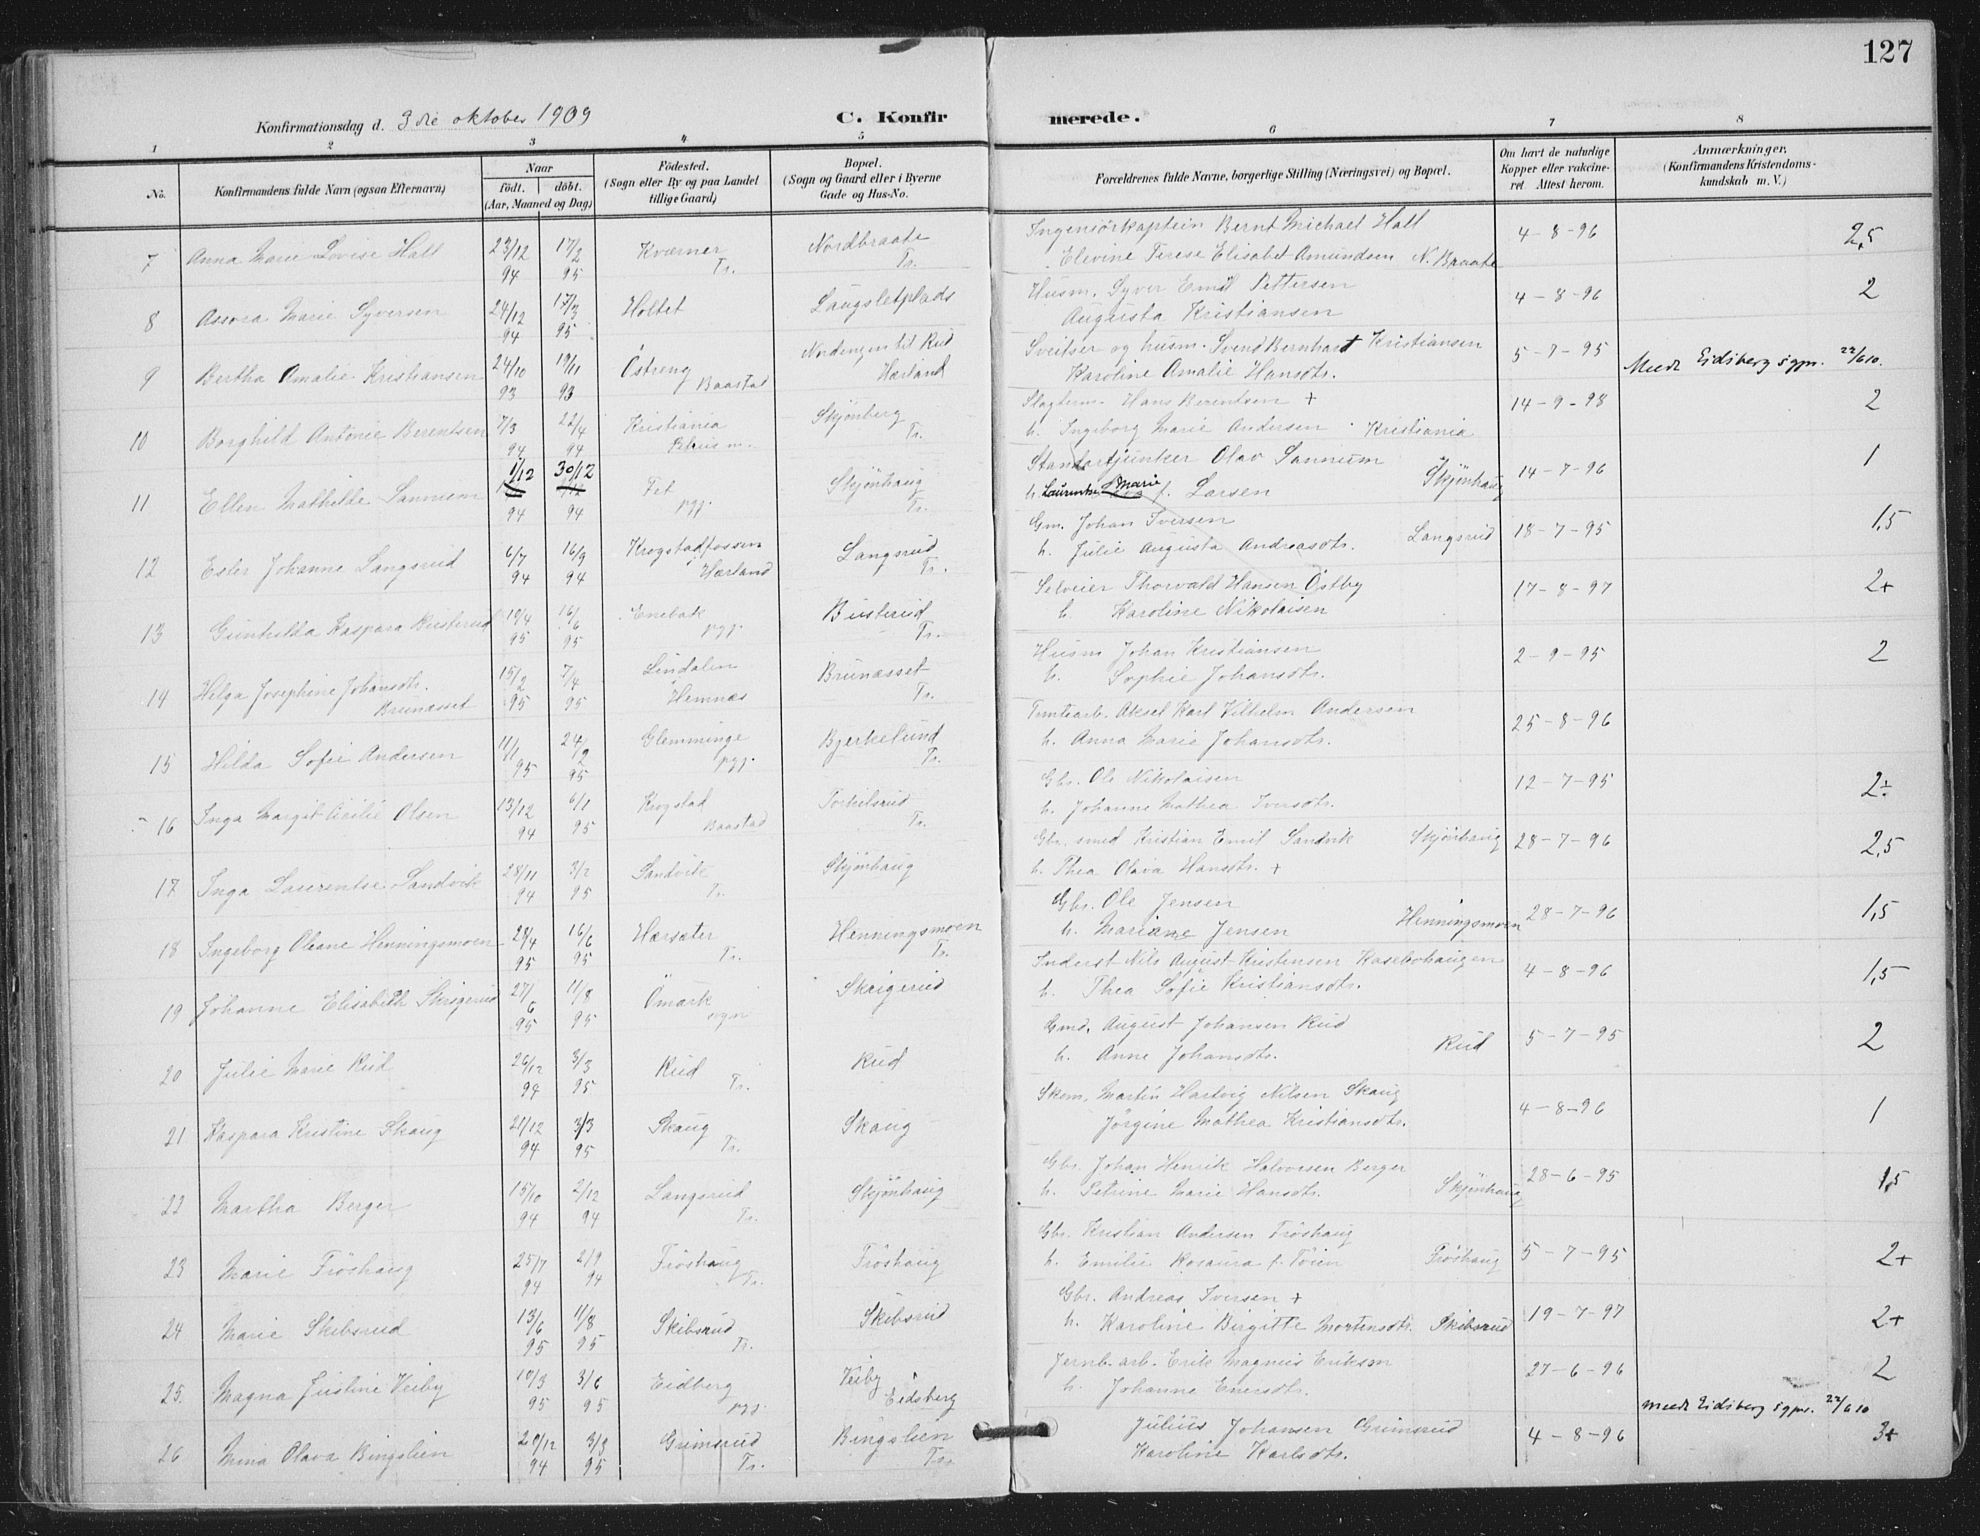 127
Konfirmationsdag d. 3die oktober 1909
C. Konfirmerede.
1 2 3 4 5 6 7 8
No.
Konfirmandens fulde Navn (ogsaa Efternavn)
Naar
født. døbt.
(Aar, Maaned og Dag)
Fødested.
(Sogn eller By og paa Landet
tillige Gaard)
Bopæl.
(Sogn og Gaard eller i Byerne
Gade og Hus-No.
Forældrenes fulde Navne, borgerlige Stilling (Næringsvei) og Bopæl.
Om havt de naturlige
Kopper eller vakcine-
ret Attest herom.
Anmærkninger.
(Konfirmandens Kristendoms-
kundskab m. V.)
7 Anna Marie Lovise Hall 23/12 94 17/2 95 Kværner Tr. Nordbraate Tr. Ingeniörkaptein Bernt Michael Hall 4-8-96 2,5
Elevine Terese Elisabet Amundsen N. Braate
8 Assora Marie Syversen 24/12 94 17/3 95 Holtet Laugsletplads Husm. Syver Emil Pettersen 4-8-96 2
Augusta Kristiansen
9 Bertha Amalie Kristiansen 24/10 93 19/11 93 Östreng Baastad Nordengen til Rud Hærland Sveitser og husm. Svend Bernhart Kristiansen 5-7-95 Meedt Eidsberg sgpr. 22/6 10.
Karoline Amalie Hansdtr.
10 Borghild Antonie Berentsen 7/3 94 22/4 94 Kristiania Skjönberg Tr. Slagterm. Hans Berentsen + 14-9-98 2
h. Ingeborg Marie Andersen Kristiania
11 Ellen Mathilde Sannum 1/12 94 30/12 94 Fet pgj. Skjönhaug Tr. Standartjunker Olav Sannum Skjönhaug 14-7-96 1
h. Laurentse Marie f. Larsen
12 Ester Johanne Langsrud 6/7 94 16/9 94 Krogstadfossen Hærland Langsrud Tr. Gm. Johan Iversen Langsrud 18-7-95 1,5
h. Julie Augusta Andreasdtr.
13 Gunhilda Kaspara Busterud 19/4 95 16/6 95 Enebak pgj. Busterud Tr. Selveier Thorvald Hansen Östby 17-8-97 2+
h. Karoline Nikolaisen
14 Helga Josephine Johansdtr. Brunæsset 15/2 95 7/4 95 Lindalen Hemnæs Brunæsset Tr. Husm Johan Kristiansen 2-9-95 2
h. Sophie Johansdtr.
15 Hilda Sofie Andersen 11/1 95 24/2 95 Glemminge pgj. Bjerkelund Tr. Tomtearb. Aksel Karl Vilhelm Andersen 25-8-96
h. Anna Marie Johansdtr.
16 Inga Margit Cecilie Olsen 13/12 94 6/1 95 Krogstad Baastad Torkilsrud Tr. Gbr. Ole Nikolaisen 12-7-95 2÷
h. Johanne Mathea Iversdtr.
17 Inga Laurentse Sandvik 28/11 94 3/2 95 Sandvik Tr. Skjönhaug Gbr. smed Kristian Emil Sandvik Skjönhaug 28-7-96 2,5
h. Thea Olava Hansdtr. +
18 Ingeborg Oleane Henningsmoen 28/4 95 16/6 95 Hærsæter Tr. Henningsmoen Tr. Gbr. Ole Jensen Henningsmoen 28-7-96 1,5
h. Mariane Jensen
19 Johanne Elisabeth Skrigerud 27/6 95 11/8 95 Ömark sogn Skrigerud Inderst Nils August Kristensen Kasebohaugen 4-8-96 1,5
h. Thea Sofie Kristiansdtr.
20 Julie Marie Rud 26/12 94 3/3 95 Rud Tr. Rud Gmd. August Johansen Rud Rud 5-7-95 2
h. Anne Johansdtr.
21 Kaspara Kristine Skaug 21/12 94 3/3 95 Skaug Tr. Skaug Skom. Martin Hartvig Nilsen Skaug 4-8-96 1
Jörgine Mathea Kristiansdtr.
22 Martha Berger 15/10 94 2/12 94 Langsrud Tr. Skjönhaug Gbr. Johan Henrik Halvorsen Berger Skjönhaug 28-6-95 1,5
h. Petrine Marie Hansdtr.
23 Marie Fröshaug 25/7 94 2/9 94 Fröshaug Tr. Fröshaug Gbr. Kristian Andersen Fröshaug 5-7-95 2+
h. Emilie Rosaura f. Töien Fröshaug
24 Marie Skibsrud 13/6 95 11/8 95 Skibsrud Tr. Skibsrud Gbr. Andreas Iversen + 19-7-97 2+
h. Karoline Birgitte Mortensdtr. Skibsrud
25. Magna Justine Veiby 10/3 95 3/6 95 Eidberg pgj. Veiby Eidsberg Jernb. arb. Erik Magnus Eriksen 27-6-96 2
h. Johanne Enersdtr. meedt Eidsberg sgpr. 22/6 10
26 Mina Olava Bingslien 20/12 94 3/3 95 Grimsrud Tr. Bingslien Tr. Julius Johansen Grimsrud 4-8-96 3+
Karoline Karlsdtr.